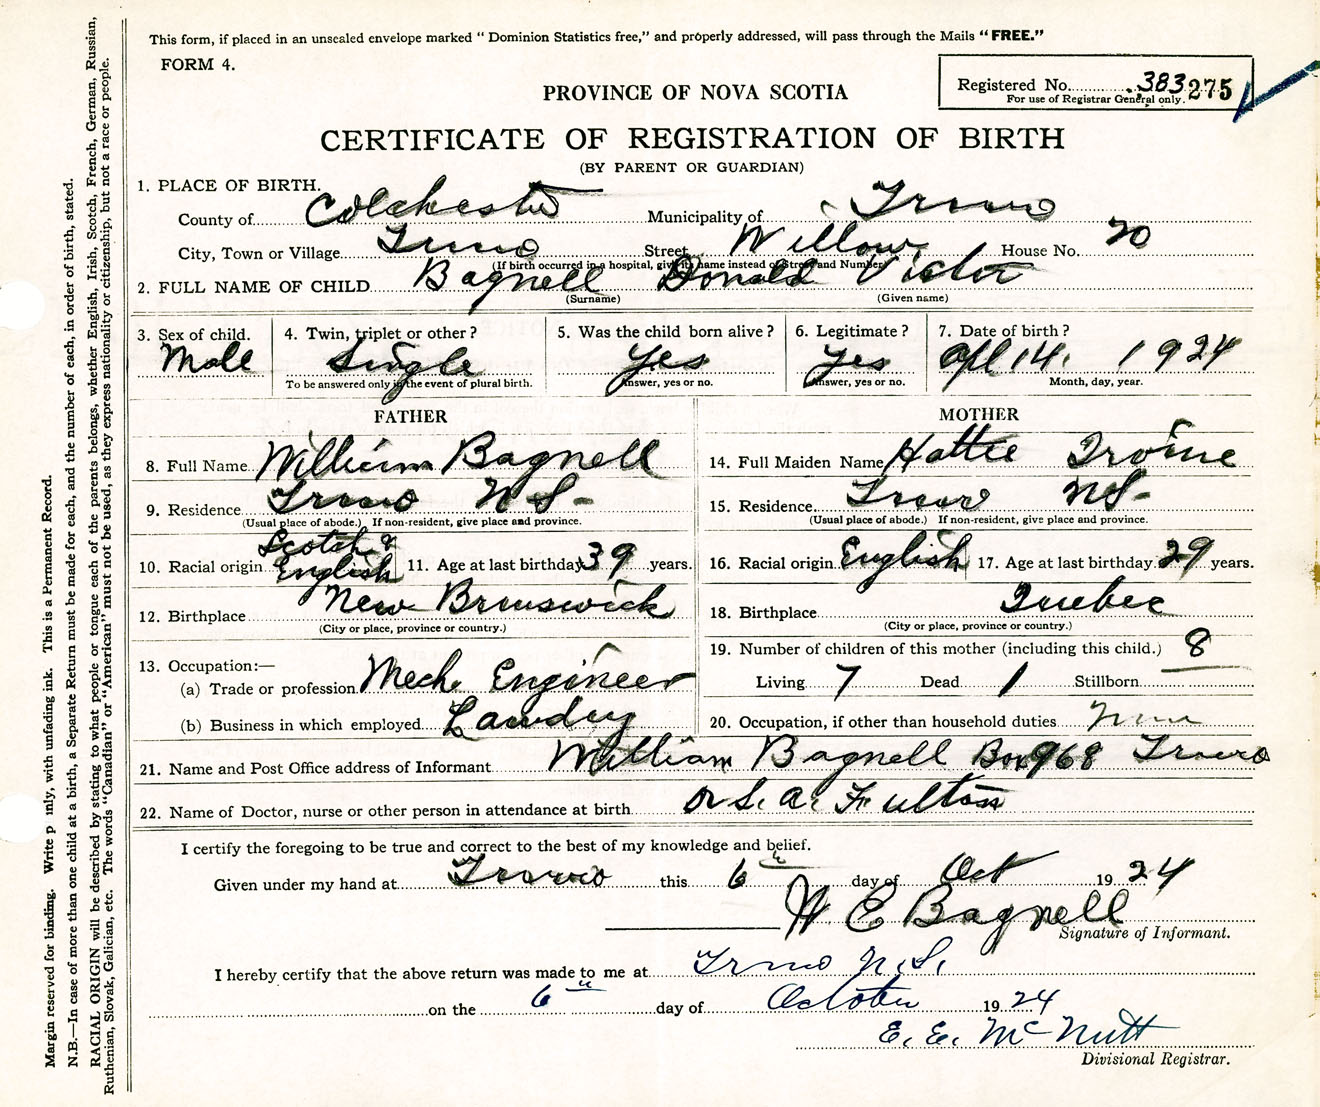 This form, if placed in an unsealed envelope marked “ Dominion Statistics free,” and properly addressed, will pass through the Mails “ FREE.”
FORM 4.
Registered No. 383 275
For use of Registrar General only.
PROVINCE OF NOVA SCOTIA
CERTIFICATE OF REGISTRATION OF BIRTH
(BY PARENT OR GUARDIAN)
1. PLACE OF BIRTH.
County of Colchester Municipality of Truro
City, Town or Village Truro Street Willow House No. 20
(If birth occurred in a hospital, give its name instead of Street and Number)
2. FULL NAME OF CHILD Bagnell Donald Victor
(Surname) (Given name)
3. Sex of child. 4. Twin, triplet or other? 5. Was the child born alive? 6. Legitimate? 7. Date of birth?
Male Single Yes Yes Apl 14. 1924
To be answered only in the event of plural birth. Answer, yes or no. Answer, yes or no. Month, day, year.
FATHER MOTHER
8. Full Name William Bagnell 14. Full Maiden Name Hattie Irvine
9. Residence Truro N S- 15. Residence Truro NS-
(Usual place of abode.) If non-resident, give place and province. (Usual place of abode.) If non-resident, give place and province.
10. Racial origin Scotch & English 11. Age at last birthday 39 years. 16. Racial origin English 17. Age at last birthday 29 years.
12. Birthplace New Brunswick 18. Birthplace Quebec
(City or place, province or country.) (City or place, province or country.)
19. Number of children of this mother (including this child.) 8
13. Occupation:—
(a) Trade or profession Mech. Engineer Living 7 Dead 1 Stillborn
(b) Business in which employed Laundry 20. Occupation, if other than household duties
21. Name and Post Office address of Informant William Bagnell Box 968 Truro
22. Name of Doctor, nurse or other person in attendance at birth Dr S. A. Fulton
I certify the foregoing to be true and correct to the best of my knowledge and belief.
Given under my hand at Truro this 6 day of Oct 1924
W E Bagnell
Signature of Informant.
I hereby certify that the above return was made to me at Truro N.S.
on the 6 day of October 1924
E. E. McNutt
Divisional Registrar.
Margin reserved for binding. Write plainly, with unfading ink. This is a Permanent Record.
N.B.—In case of more than one child at a birth, a Separate Return must be made for each, and the number of each, in order of birth, stated.
RACIAL ORIGIN will be described by stating to what people or tongue each of the parents belongs, whether English, Irish, Scotch, French, German, Russian,
Ruthenian, Slovak, Galician, etc. The words “Canadian” or “American” must not be used, as they express nationality or citizenship, but not a race or people.